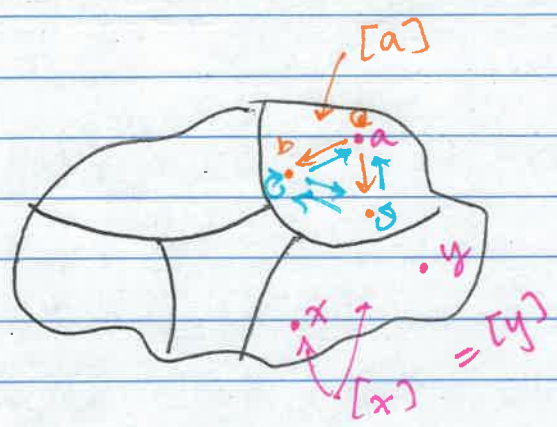 [a]
a
b
y
x
[x]
= [y]